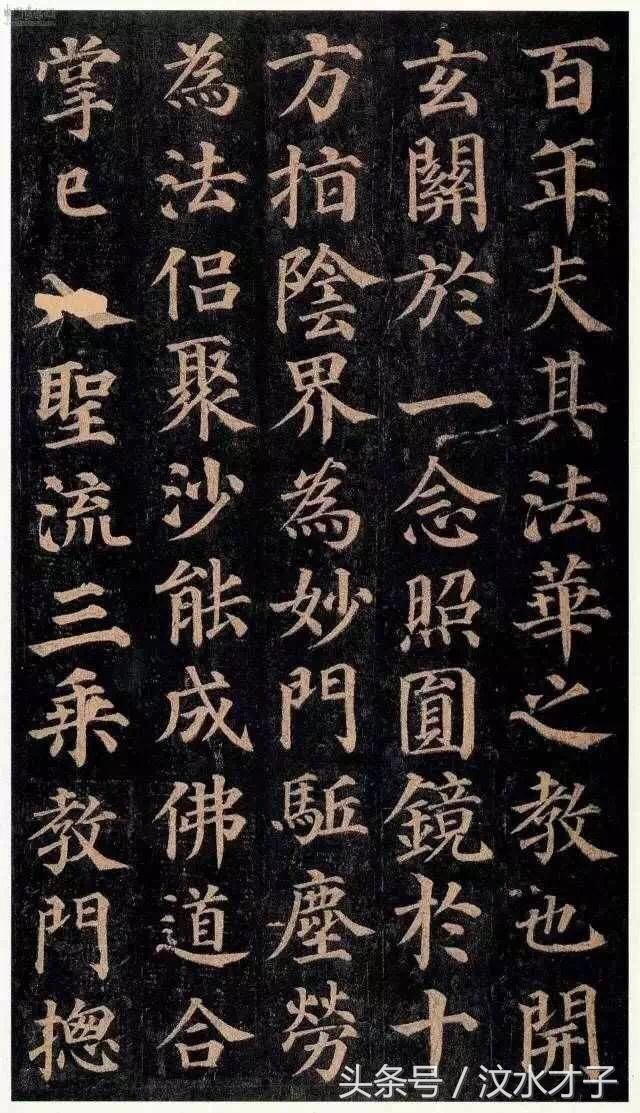 百年夫其法華之教也開
玄關於一念照圎鏡於十
方指陰界為妙門駈塵勞
為法侣聚沙能成佛道合
掌已入聖流三乘教門揔
头条号 / 汶水才子